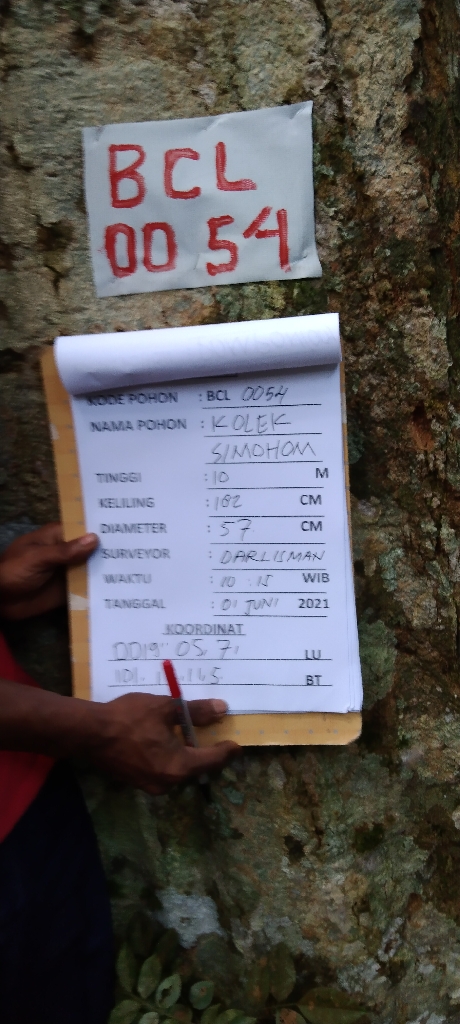 BCL
0054
KODE POHON : BCL 0054
NAMA POHON : KOLEK
SIMOHOM
TINGGI : 10 M
KELILING : 182 CM
DIAMETER : 57 CM
SURVEYOR : DARLISMAN
WAKTU : 10 : 15 WIB
TANGGAL : 01 JUNI 2021
KOORDINAT
0019" 05. 71 LU
101. BT